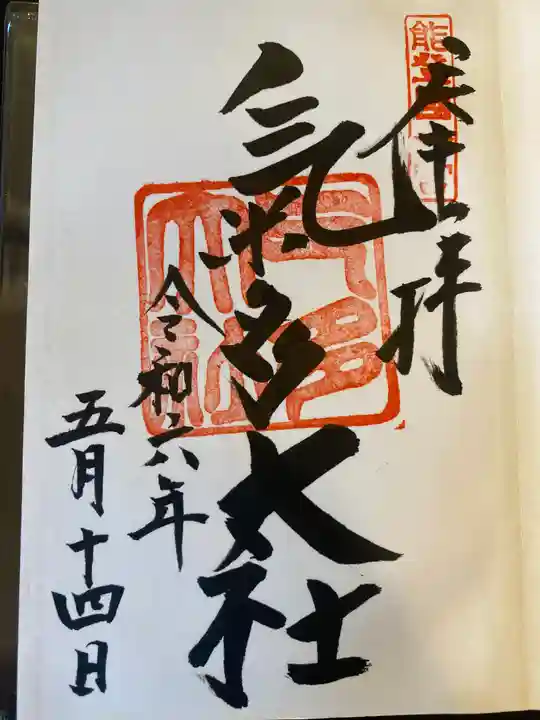 能登國一宮
奉拝
氣多大社
令和六年
五月十四日